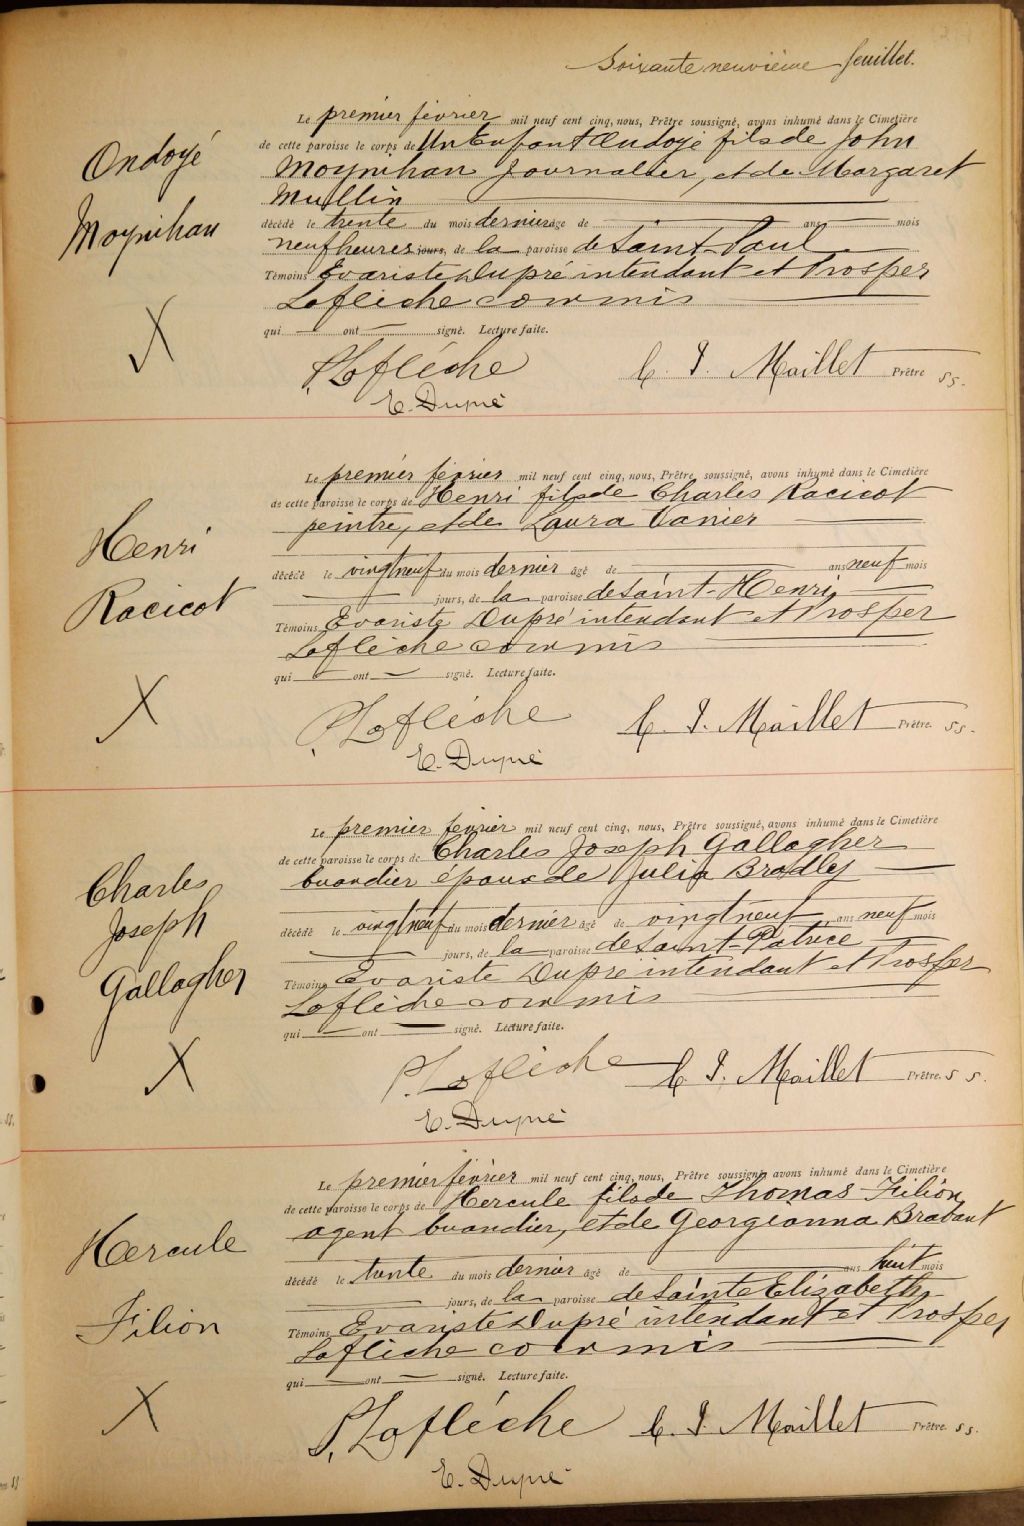 Soixante neuvième feuillet.
Ondoyé
Moynihan
X
Le premier février mil neuf cent cinq, nous, Prêtre soussigné, avons inhumé dans le Cimetière
de cette paroisse le corps de Un Enfant Ondoyé fils de John
Moynihan Journalier, et de Margaret
Mullin
décédé le trente du mois dernier âgé de ans mois
neuf heures jours, de la paroisse de Saint-Paul
Témoins Evariste Dupré intendant et Prosper
Laflèche commis
qui ont signé. Lecture faite.
P. Lafléche C. I. Maillet Prêtre SS.
E. Dupré
Henri
Racicot
X
Le premier février mil neuf cent cinq, nous, Prêtre soussigné, avons inhumé dans le Cimetière
de cette paroisse le corps de Henri fils de Charles Racicot
peintre, et de Laura Vanier
décédé le vingt neuf du mois dernier âgé de ans neuf mois
jours, de la paroisse de Saint-Henri
Témoins Evariste Dupré intendant et Prosper
Laflèche commis
qui ont signé. Lecture faite.
P. Lafléche C. I. Maillet Prêtre. SS.
E. Dupré
Charles
Joseph
Gallagher
X
Le premier février mil neuf cent cinq, nous, Prêtre soussigné, avons inhumé dans le Cimetière
de cette paroisse le corps de Charles Joseph Gallagher
buandier époux de Julia Bradley
décédé le vingt neuf du mois dernier âgé de vingt neuf ans neuf mois
jours, de la paroisse de Saint-Patrice
Témoins Evariste Dupré intendant et Prosper
Laflèche commis
qui ont signé. Lecture faite.
P. Lafléche C. I. Maillet Prêtre. SS.
E. Dupré
Hercule
Filion
X
Le premier février mil neuf cent cinq, nous, Prêtre soussigné, avons inhumé dans le Cimetière
de cette paroisse le corps de Hercule fils de Thomas Filion
agent buandier, et de Georgianna Brabant
décédé le trente du mois dernier âgé de ans huit mois
jours, de la paroisse de Sainte Elizabeth
Témoins Evariste Dupré intendant et Prosper
Laflèche commis
qui ont signé. Lecture faite.
P. Lafléche C. I. Maillet Prêtre. SS.
E. Dupré